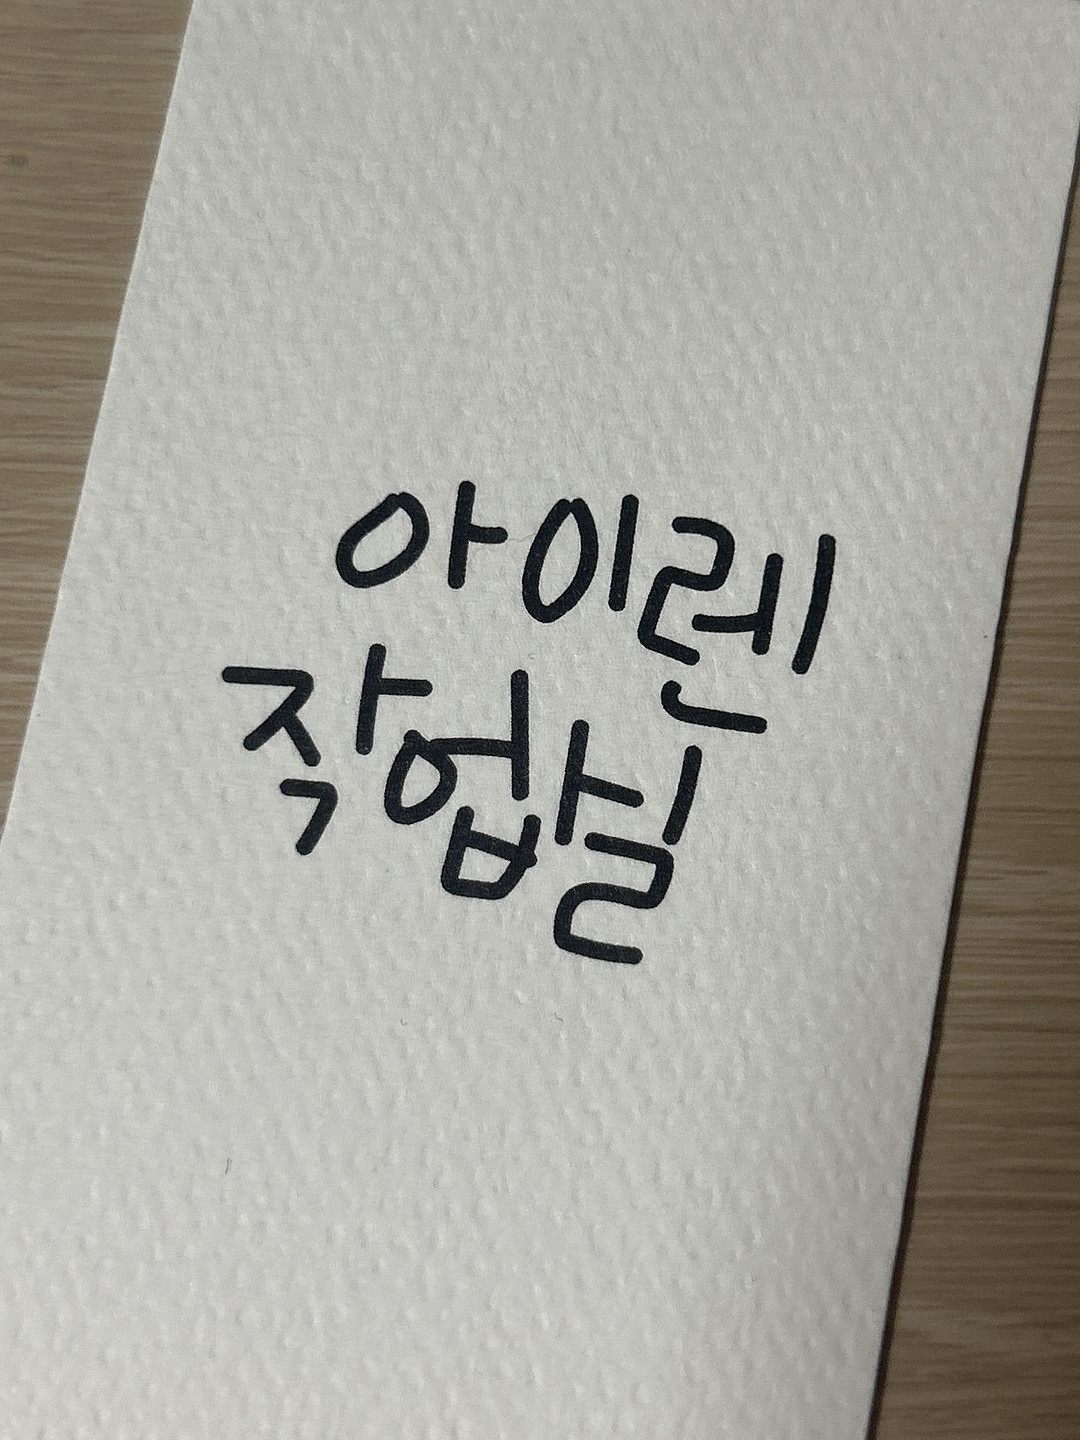 아이렌
작업실